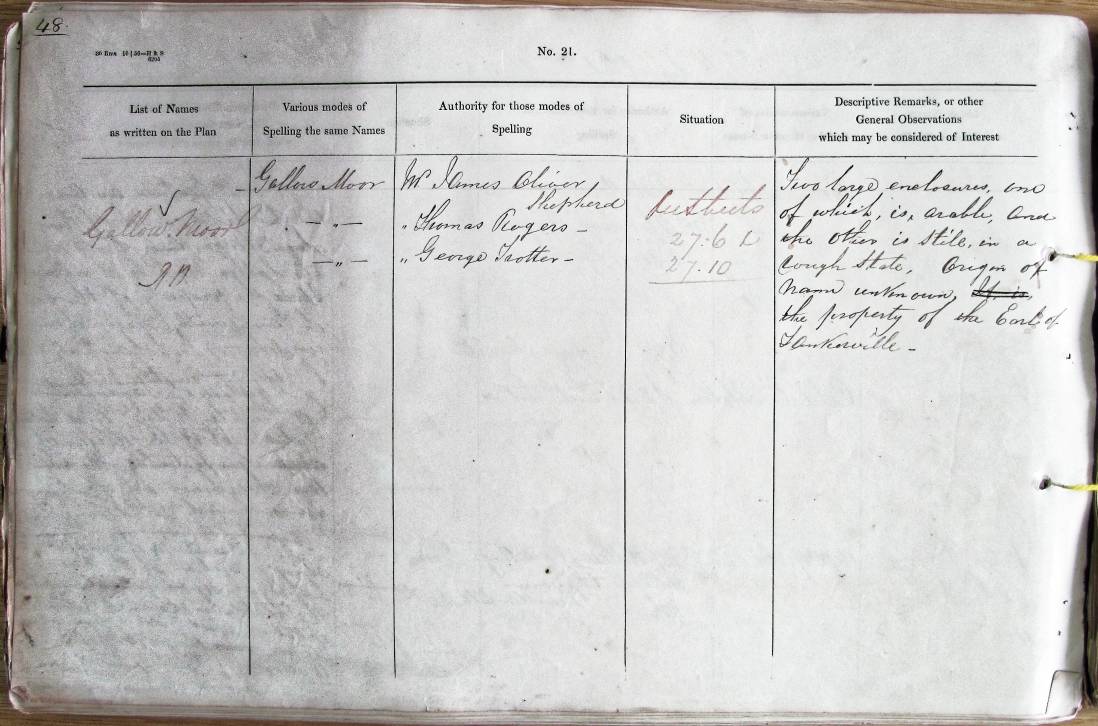 48.
No. 21.
List of Names
as written on the Plan
Various modes of
Spelling the same Names
Authority for those modes of
Spelling
Situation
Descriptive Remarks, or other
General Observations
which may be considered of Interest
Gallow Moor
Gallow Moor
— „ —
— „ —
Mr James Oliver
Shepherd
„ Thomas Rogers –
„ George Trotter –
27.6
27.10
Two large enclosures, one
of which, is, arable, and
the other is stile, in a
rough State. Origin of
Name unknown, It is
the property of the Earl of
Tankerville –